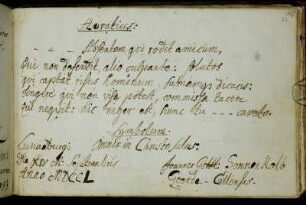 Horatius:
- - - Absentem qui rodit amicum,
Qui non defendit, alio culpante: solutos
qui captat risus hominum famamqu dicacis:
Fingere qui non visa potest, commissa tacere
Qui nequit: hic niger est, hunc tu - - - caveto.
Symbolum
Omnia in Christo Solus.
Lunaeburg:
XIV
Anno MDCCL
Joannes Gottl: Sonnen Kalb